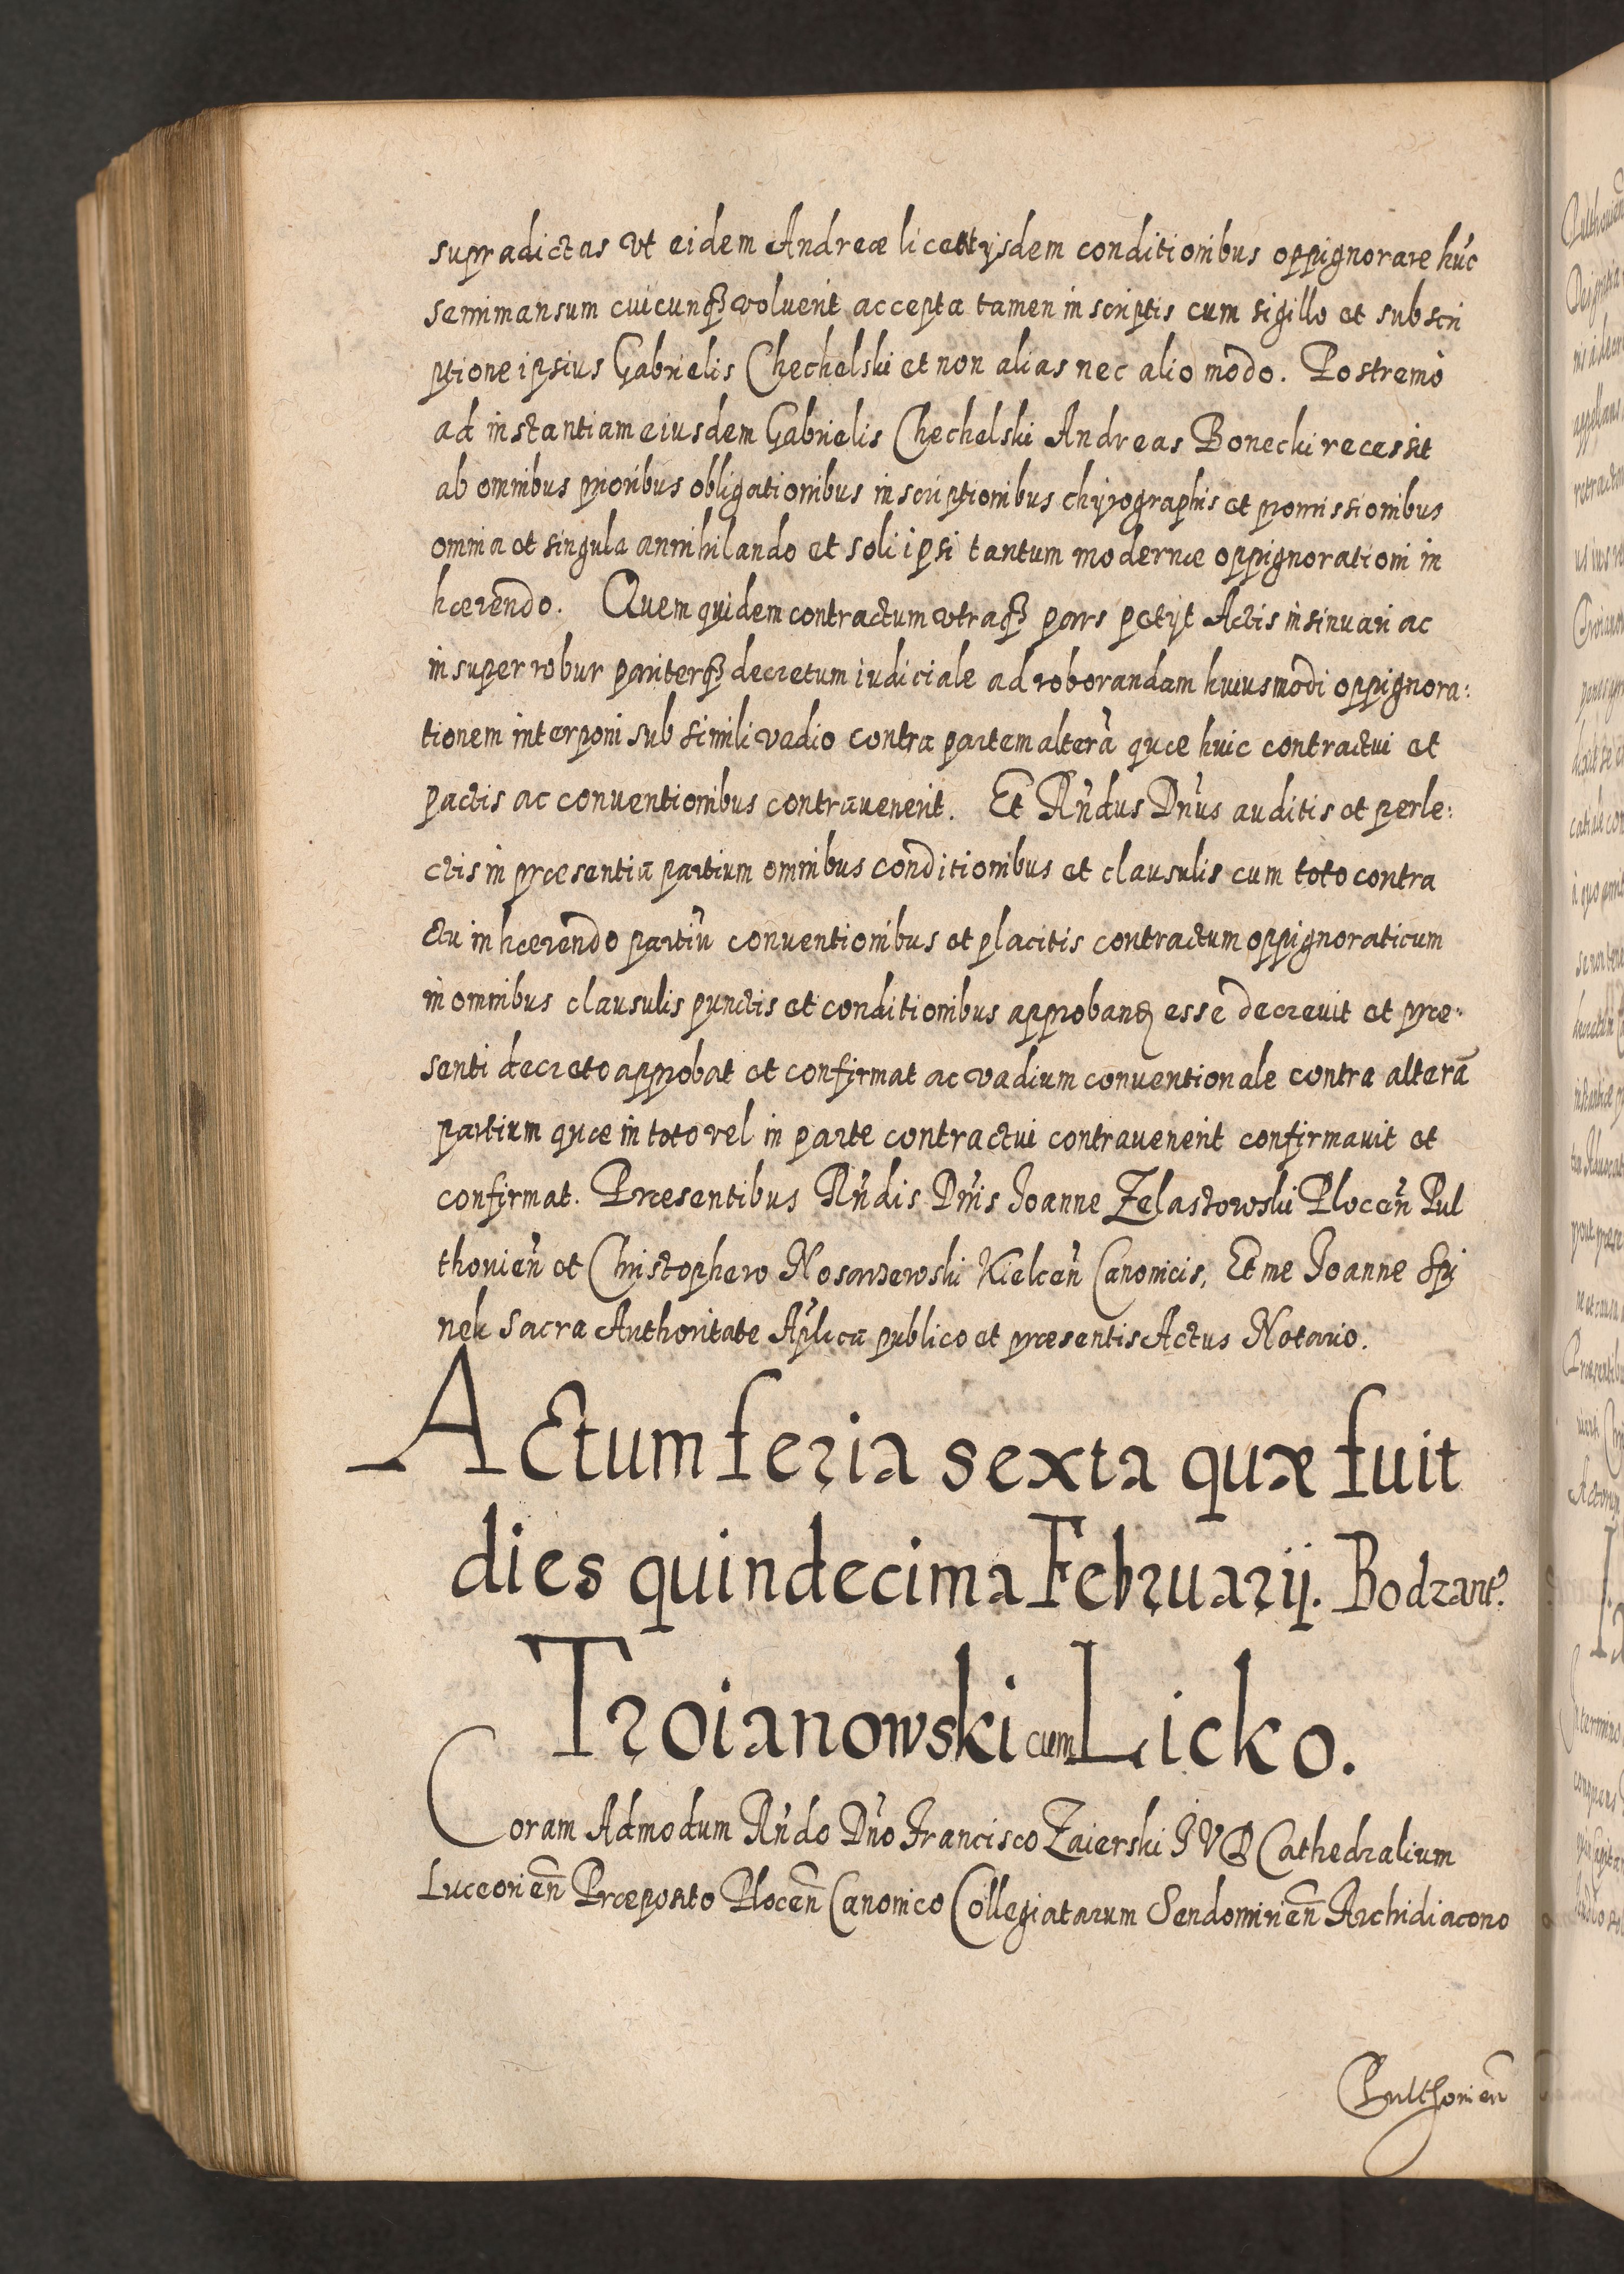 supradictas vt eidem Andreæ licet ijsdem conditionibus oppignorare huc
semimansum cuicunqȝ voluerit accepta tamen in scriptis cum sigillo et subscri
ptione ipsius Gabrielis Chechelski et non alias nec alio modo. Postremò
ad instantiam eiusdem Gabrielis Chechelski Andreas Bonecki recessit
ab omnibus prioribus obligationibus inscriptionibus chyrographis et promissionibus
omnia et singula annihilando et soli ipsi tantum modernæ oppignorationi in
hærendo. Quem quidem contractum vtraqȝ pars petijt Actis insinuari ac
insuper robur pariterqȝ decretum iudiciale ad roborandam huiusmodi oppignora:
tionem interponi sub simili vadio contra partem alterã quæ huic contractui et
pactis ac conuentionibus contrauenerit. Et Rñdus Dñus auditis et perle:
ctis in præsentia partium omnibus conditionibus et clausulis cum toto contra
ctu inhærendo partiũ conuentionibus et placitis contractum oppignoraticum
in omnibus clausulis punctis et conditionibus approband esse decreuit et præ:
senti decreto approbat et confirmat ac vadium conuentionale contra alterã
partium quæ in toto vel in parte contractui contrauenerit confirmauit et
confirmat. Præsentibus Rñdis Dñis Joanne Zelastowski Plocen̄ Pul
thouien̄ et Christophero Nosarzewski Kielcen̄ Canonicis, Et me Joanne Spi
nek Sacra Authoritate Aplica publico et præsentis Actus Notario.
Actum feria sexta quæ fuit
dies quindecima Februarij. Bodzant.
Troianowski cum Licko.
Coram Admodum Rñdo Dño Francisco Zaierski JVD Cathedralium
Luceorien̄ Præposito Plocen̄ Canonico Collegiatarum Sendomirien̄ Archidiacono
Pulthouien̄